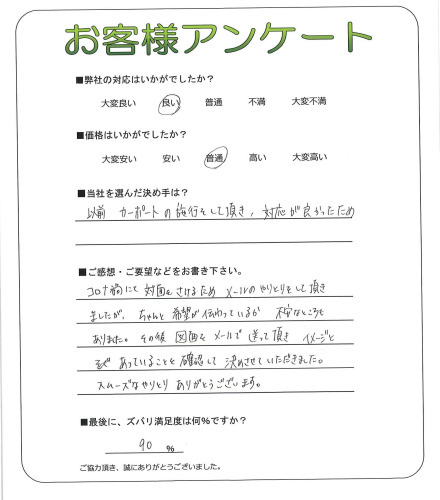 お客様アンケート
■弊社の対応はいかがでしたか?
大変良い 良い 普通 不満 大変不満
■価格はいかがでしたか?
大変安い 安い 普通 高い 大変高い
■当社を選んだ決め手は?
以前 カーポートの施行をして頂き、対応が良かったため
■ご感想・ご要望などをお書き下さい。
コロナ禍にて対面をさけるため メールのやりとりをして頂き
ましたが、ちゃんと希望が伝わっているか 不安なところも
ありました。その後 図面をメールで送って頂き イメージと
あっていることを確認して決めさせていただきました。
スムーズなやりとり ありがとうございます。
■最後に、ズバリ満足度は何%ですか?
90 %
ご協力頂き、誠にありがとうございました。